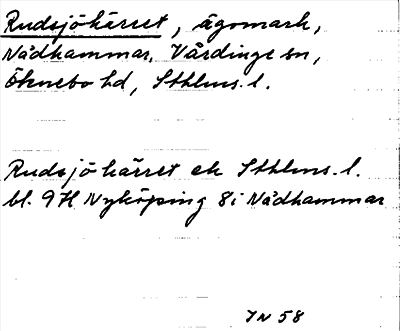 Rudsjökärret, ägomark,
Nådhammar, Vårdinge sn,
Öknebo hd, Sthlms. l.
Rudsjökärret ek Sthlms. l.
bl. 9H Nyköping 8i Nådhammar
IN 58